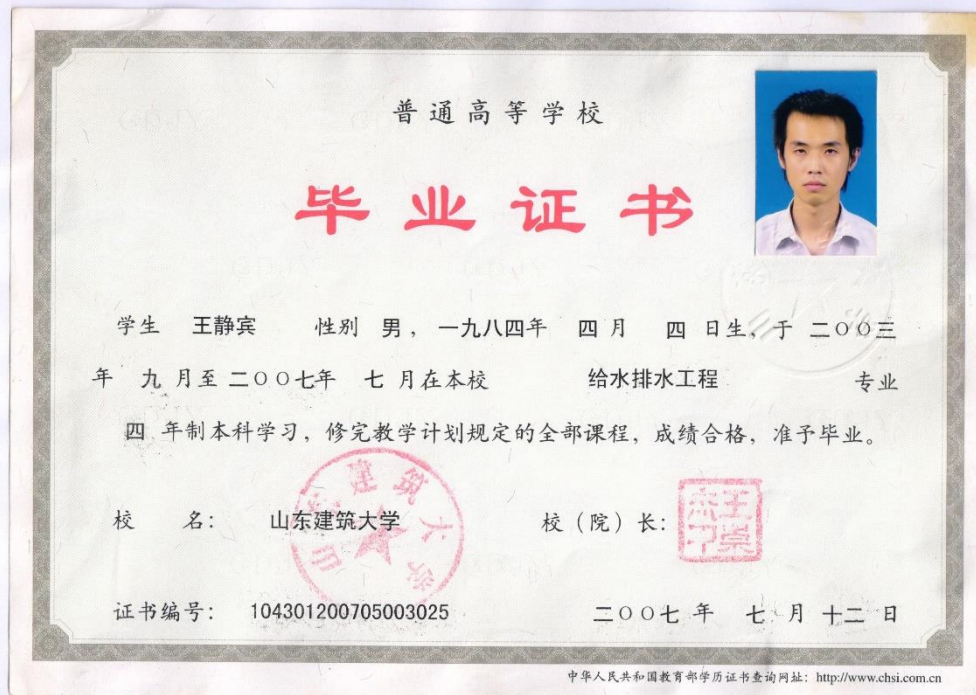 普通高等学校
毕业证书
学生 王静宾 性别 男，一九八四年 四月 四日生，于 二〇〇三
年 九 月至二〇〇七年 七 月在本校 给水排水工程 专业
四 年制本科学习，修完教学计划规定的全部课程，成绩合格，准予毕业。
校 名： 山东建筑大学 校（院）长：
证书编号： 104301200705003025 二〇〇七年 七月十二日
中华人民共和国教育部学历证书查询网址：http://www.chsi.com.cn